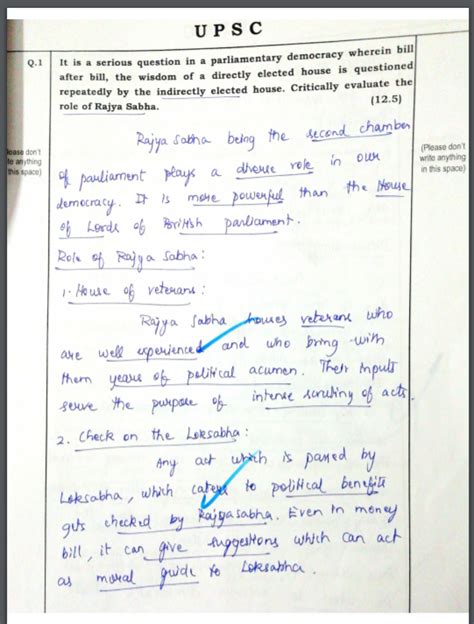 UPSC
Q.1 It is a serious question in a parliamentary democracy wherein bill
after bill, the wisdom of a directly elected house is questioned
repeatedly by the indirectly elected house. Critically evaluate the
role of Rajya Sabha. (12.5)
(Please don't
write anything
in this space)
(Please don't
write anything
in this space)
Rajya Sabha being the second chamber
of parliament plays a diverse role in our
democracy. It is more powerful than the House
of Lords of British parliament.
Role of Rajya Sabha:
1. House of veterans:
Rajya Sabha houses veterans who
are well experienced and who bring with
them years of political acumen. Their inputs
serve the purpose of intense scrutiny of acts.
2. Check on the Loksabha:
Any act which is passed by
Loksabha, which caters to political benefits
gets checked by Rajyasabha. Even in money
bill, it can give suggestions which can act
as moral guide to Loksabha.